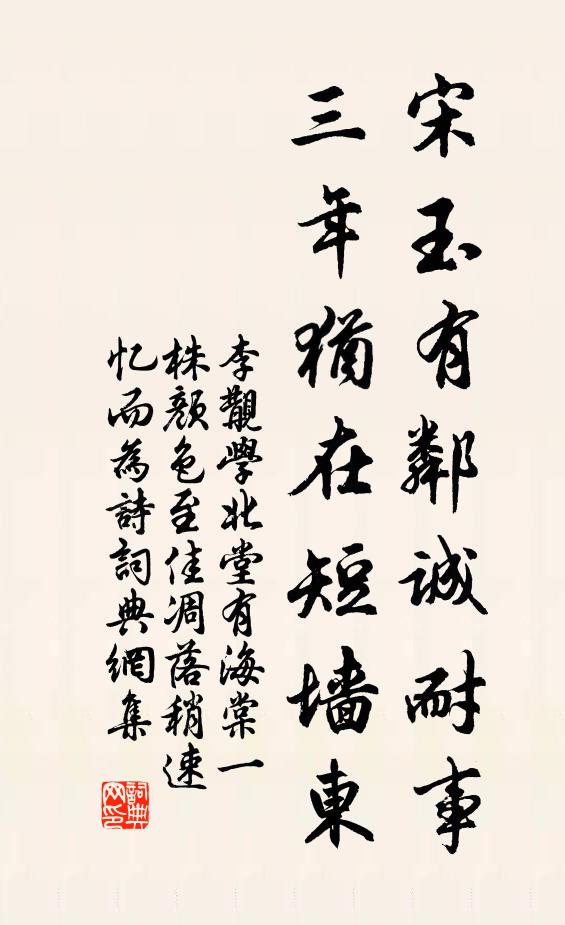 宋玉有鄰诚耐事
三年猶在短墙東
李覯學北堂有海棠一
株顏色至佳凋落稍速
忆而為詩詞典網集
詞典网印